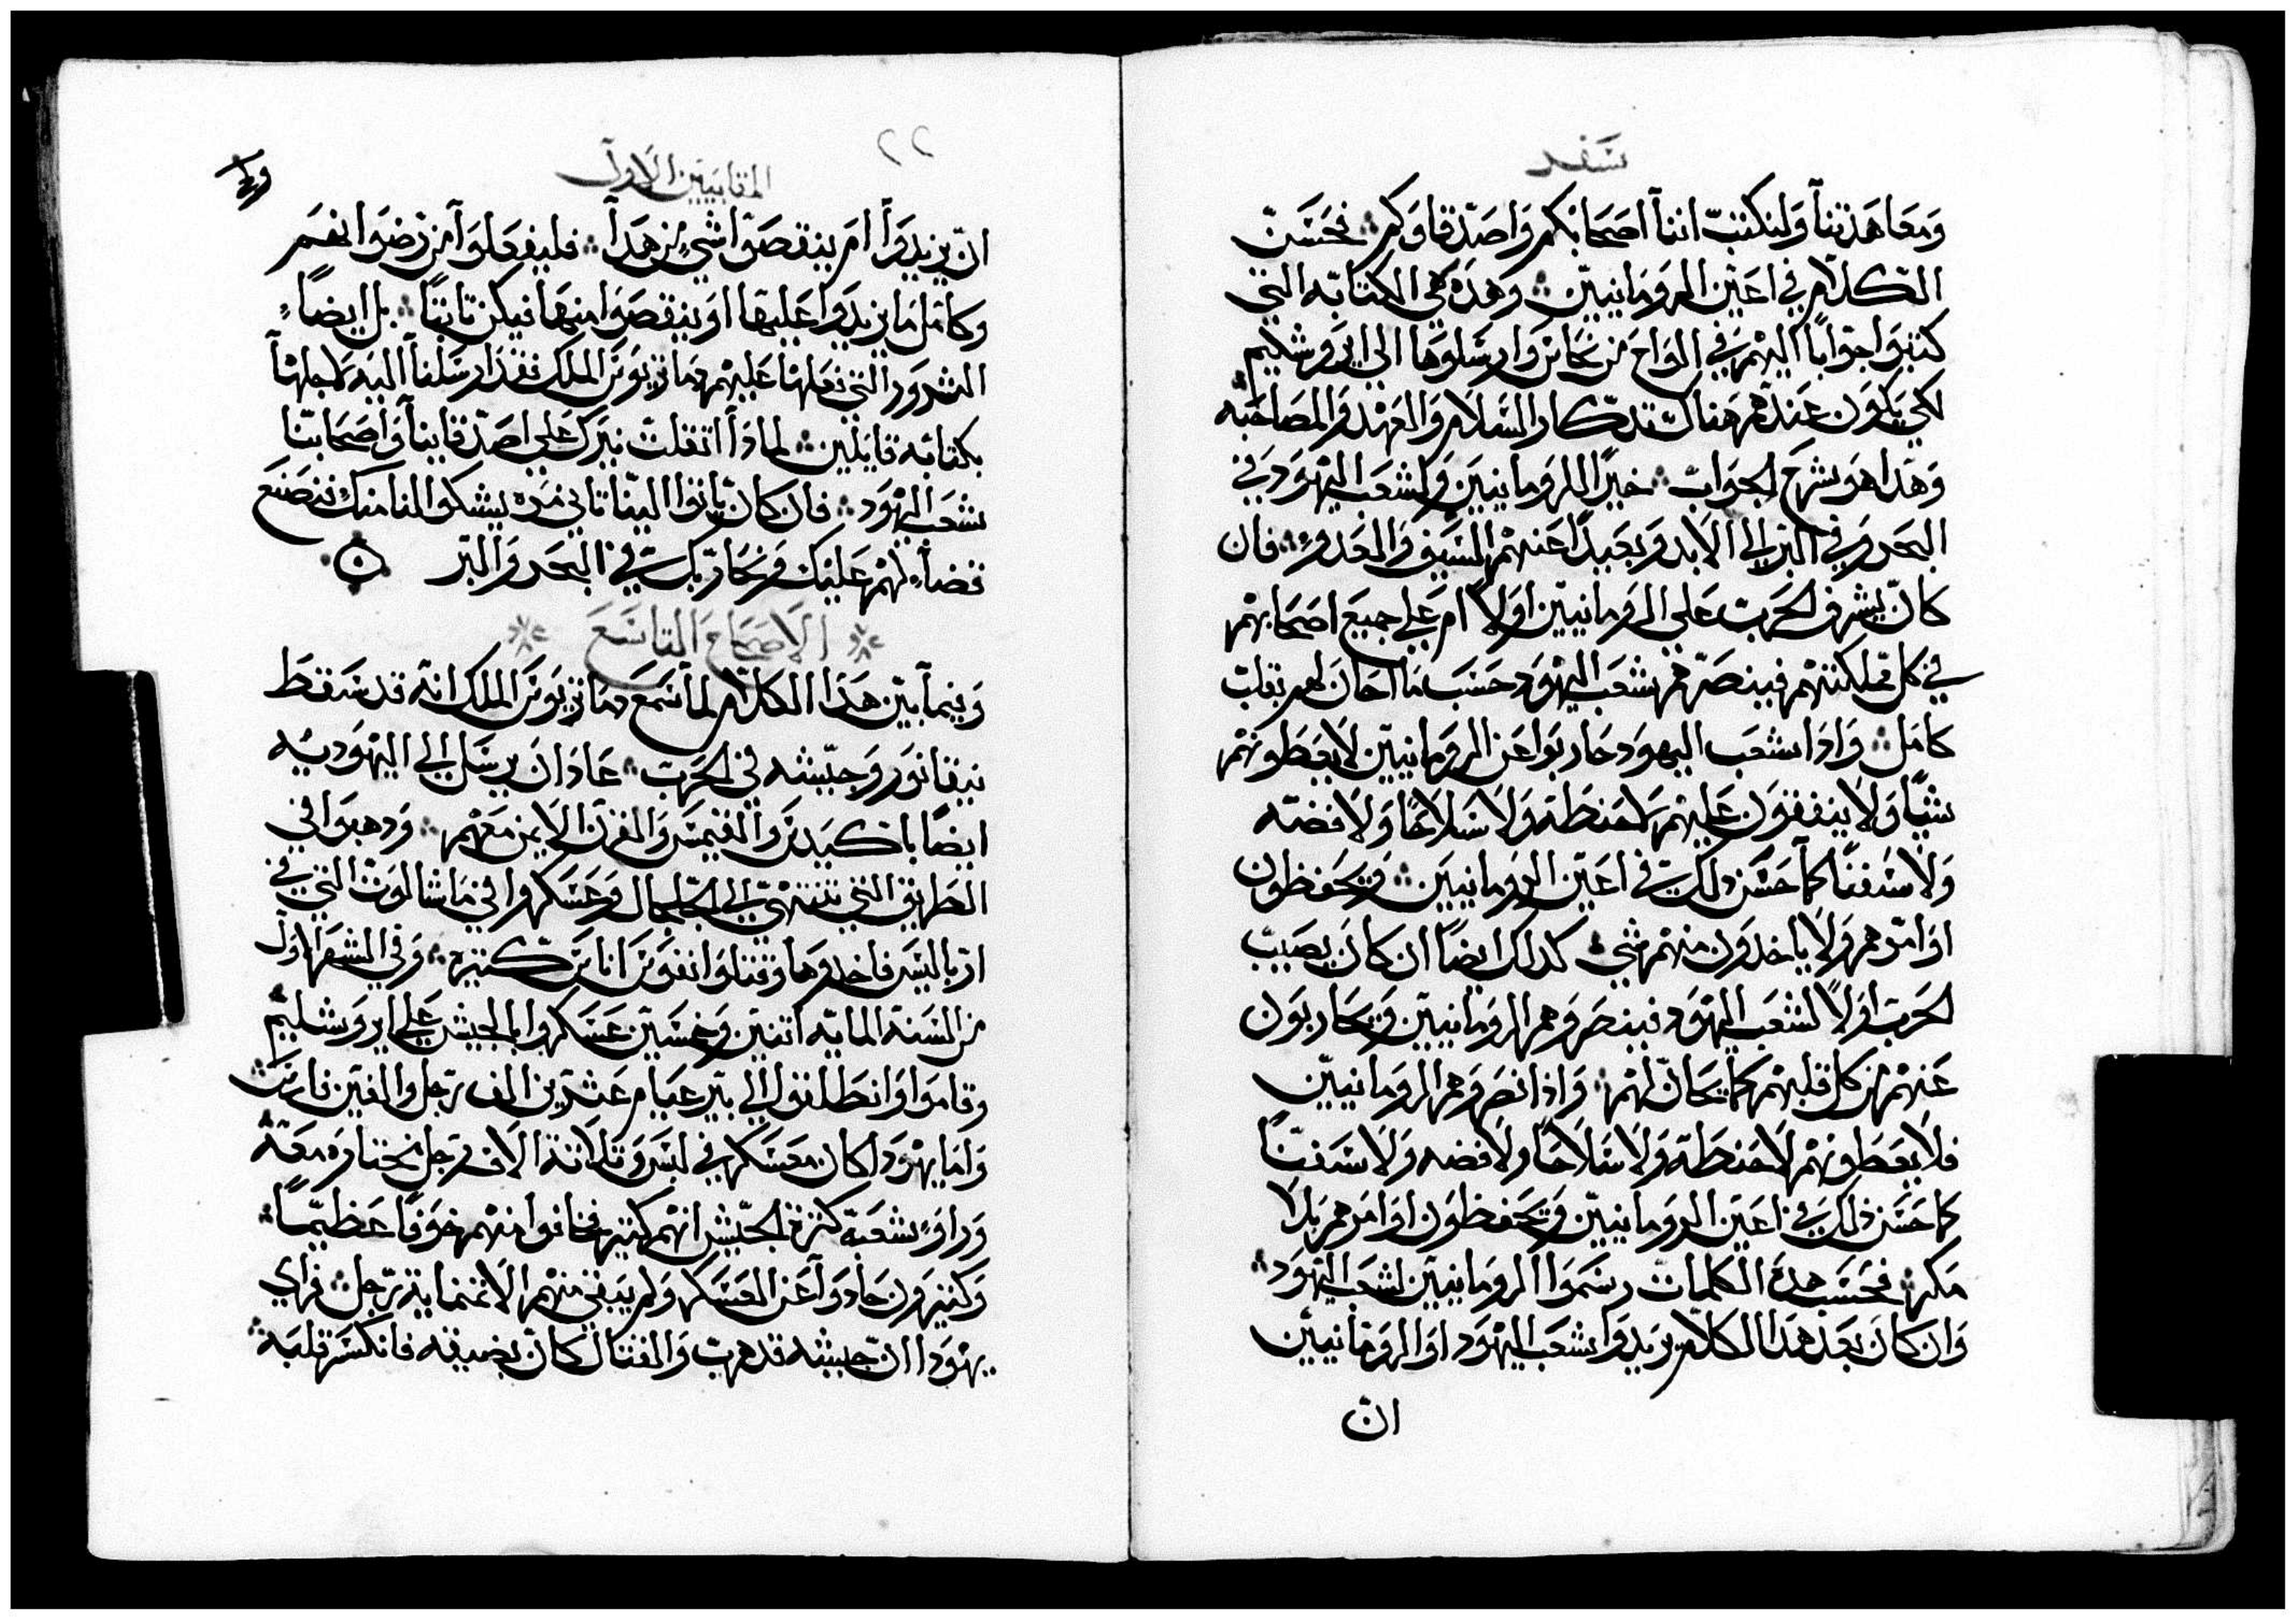 سفر
ومعاهدتنا ولنكتب اننا اصحابكم واصدقاوكم فحسن
الكلام في اعين الرومانيين وهذه هي الكتابه التي
كتبوا جوابا اليهم في الواح من نحاس وارسلوها الي ايروشليم
لكي يكون عندهم هناك تدكار السلام والعهد والمصاحبه
وهدا هو شرح الجواب خيرا للرومانيين ولشعب اليهود في
البحر وفي البر الي الابد وبعيدا عنهم السيف والعدو فان
كان يشرف الحرب علي الرومانيين اولا ام علي جميع اصحابهم
في كل مملكتهم فينصرهم شعب اليهود حسب ما احان لهم بقلب
كامل وادا شعب اليهود حاربوا عن الرومانيين لا يعطونهم
شيا ولا ينفقون عليهم لا حنطة ولا سلاحا ولا فضه
ولا سفنا كما حسن دلك في اعين الرومانيين ويحفظون
اوامرهم ولا ياخدون منهم شي كدلك ايضا ان كان يصيب
الحرب اولا لشعب اليهود فينصروهم الرومانيين ويحاربون
عنهم من كل قلبهم كما يحان لهم واذا نصروهم الرومانيين
فلا يعطونهم لا حنطة ولا سلاحا ولا فضه ولا سفنا
كما حسن ذلك في اعين الرومانيين ويحفظون اوامرهم بلا
مكر فحسب هده الكلمات رسموا الرومانيين لشعب اليهود
وان كان بعد هدا الكلام يريدوا شعب اليهود او الرومانيين
ان
٢٢
المقابيين الاول
ان يزيدوا ام ينقصوا شي من هدا فليفعلوا من رضوانهم
وكامل ما يزيدوا عليها او ينقصوا منها فيكن تابتا بل ايضا
الشرور التي فعلها عليهم دمازيوس الملك فقد ارسلنا اليه لاجلها
بكتابه قايلين لمادا اتقلت نيرك علي اصدقاينا واصحابنا
شعب اليهود فان كان ياتوا الينا تاني مره يشكوا لنا منك فنصنع
قضاء لهم عليك ونحاربك في البحر والبر
الاصحاح التاسع
وبينما بين هذا الكلام لما سمع دمازيوس الملك انه قد سقط
نيقانور وجيشه في الحرب عاد ان يرسل الي اليهوديه
ايضا باكيدس والقيمس والقرن الايمن معهم ودهبوا في
الطريق التي تنتهي الي الجلجال وعسكروا في ماشالوت التي في
اربالس فاخدوها وقتلوا نفوس اناس كتيره وفي الشهر الاول
من السنة المايه اتنين وخمسين عسكروا بالجيش علي ايروشليم
وقاموا وانطلقوا الي بيرعيام عشرين الف رجل والفين فارس
واما يهودا كان معسكر في لسر وتلاتة الاف رجل مختاره معه
وراو شعبه كترة الجيش انهم كتير فخافوا منهم خوفا عظيما
وكتيرون حادوا عن العسكر ولم يبقي منهم الا تمنماية رجل فراي
يهودا ان جيشه قد هرب والقتال كان يضيقه فانكسر قلبه